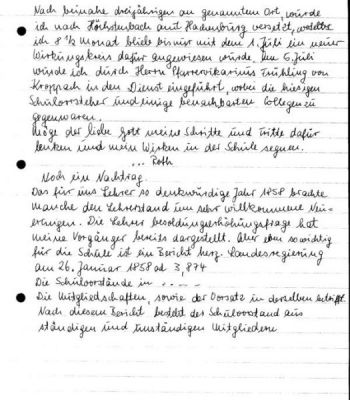 Nach beinahe dreijährigen an genanntem Ort, wurde
ich nach Höchstenbach amt Hachenburg versetzt, woselbst
ich 8 1/2 Monat blieb bis mir mit dem 1. Juli ein neuer
Wirkungskreis dafür angewiesen wurde. Am 6. Juli
wurde ich durch Herrn Pfarrervikarius Frühling von
Kroppach in den Dienst eingeführt, wobei die hiesigen
Schulvorsteher und einige benachbarten Collegen zu
gegenwaren.
Möge der liebe Gott meine Schritte und Tritte dafür
lenken und mein Wirken in der Schule segnen.
... Roth
Noch ein Nachtrag.
Das für uns Lehrer so denkwürdige Jahr 1858 brachte
manche den Lehrerstand uns sehr willkommene Neu-
erungen. Die Lehrer besoldungserhöhungsfrage hat
meine Vorgänger bereits dargestellt. Aber eben so wichtig
für die Schule ist ein Bericht herz. Landesregierung
am 26. Januar 1858 ad 3,874
Die Schulvorstände in .....
Die Mitgliedschaften, sowie der Vorsatz in derselben betrifft.
Nach diesem Bericht besteht der Schulvorstand aus
ständigen und unständigen Mitgliedern